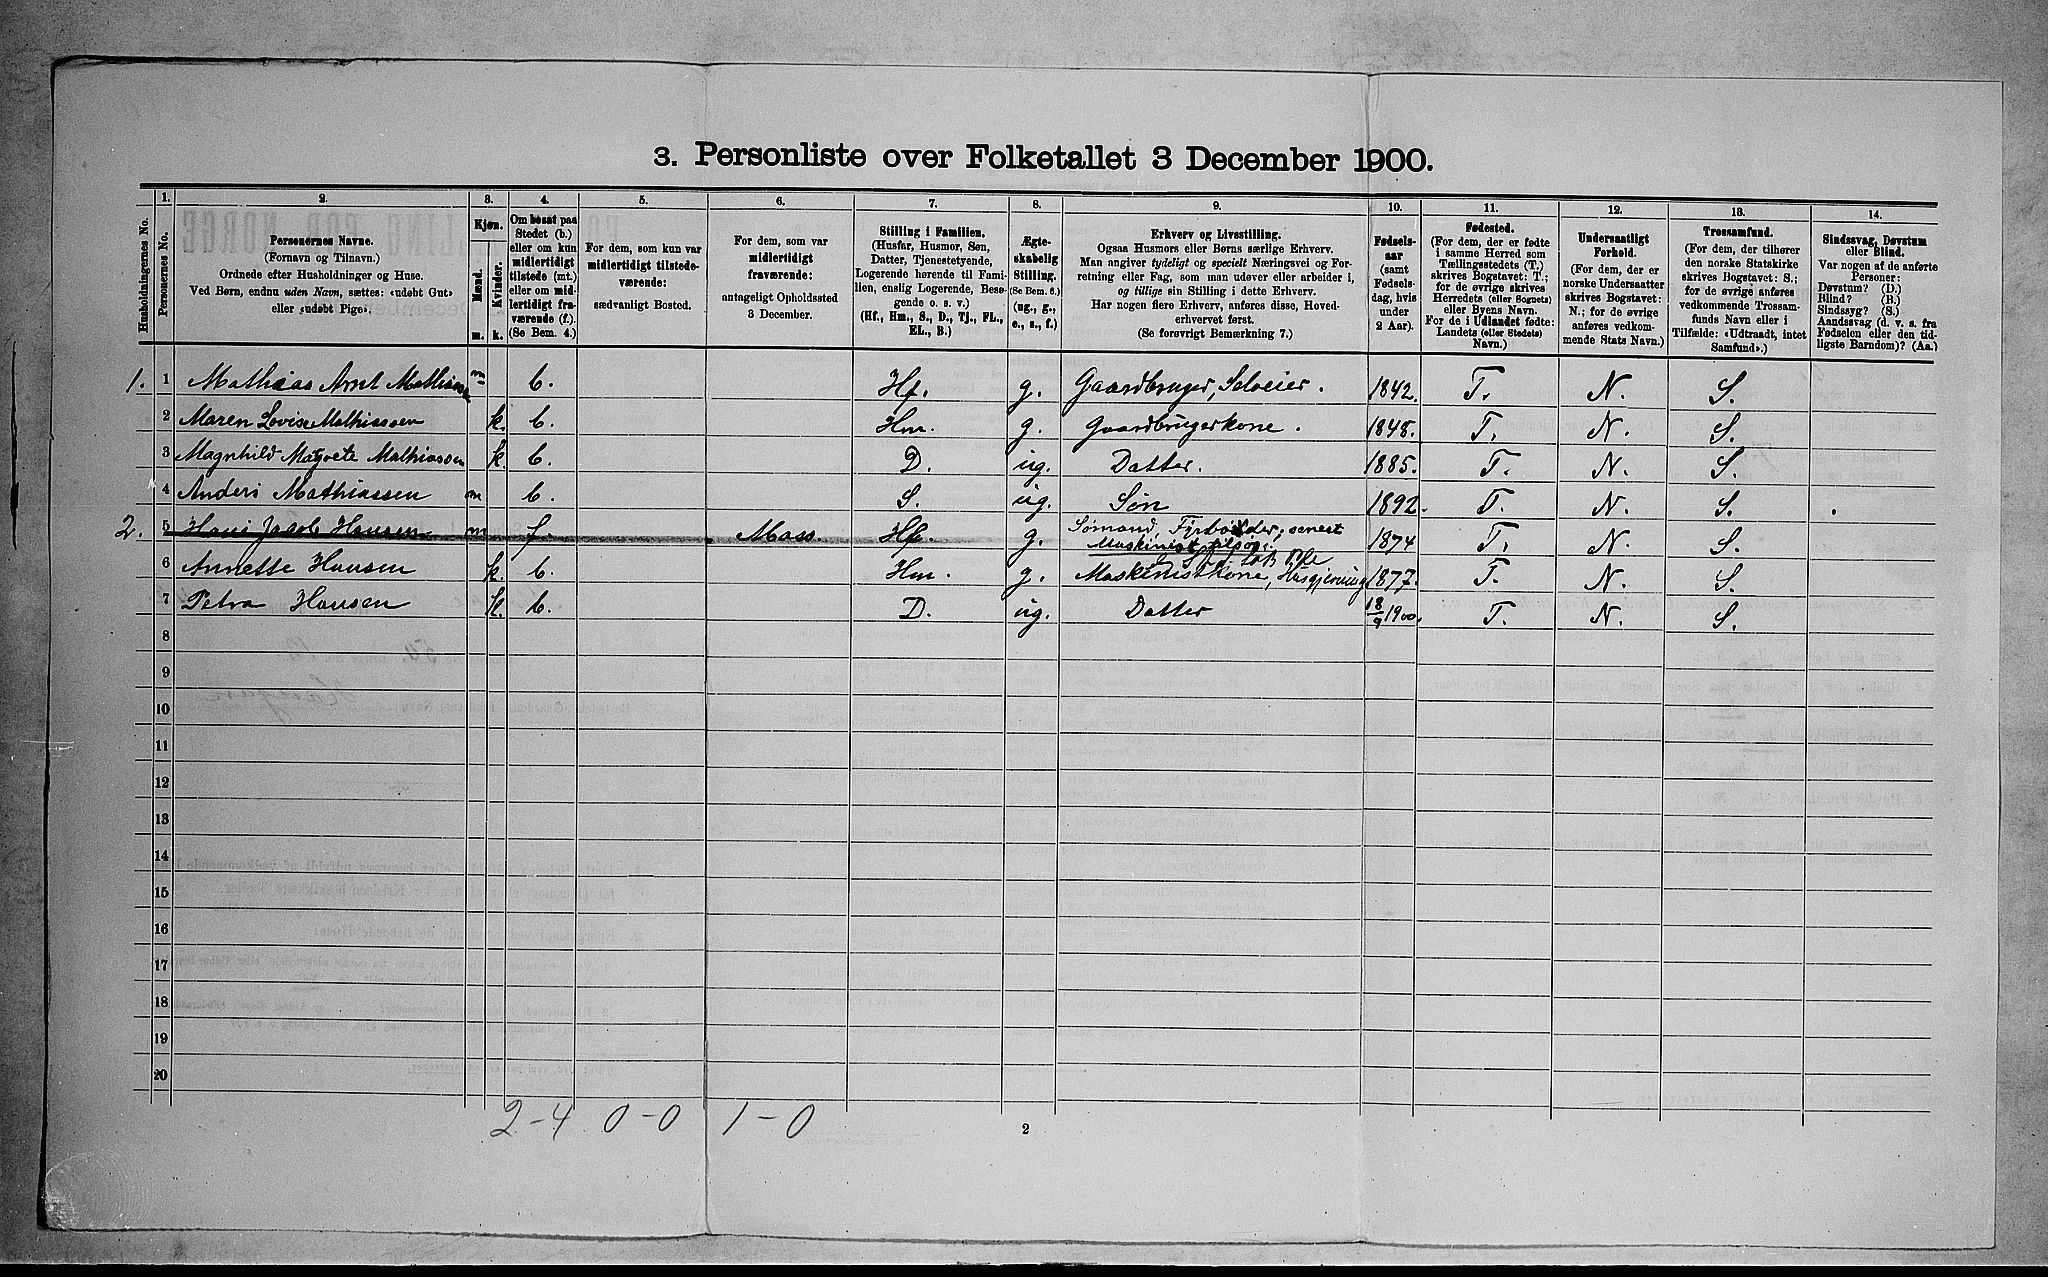 3. Personliste over Folketallet 3 December 1900.
Husholdningernes No.
1.
Personernes No.
2.
Personernes Navne.
(Fornavn og Tilnavn.)
Ordnede efter Husholdninger og Huse.
Ved Børn, endnu uden Navn, sættes: «udøbt Gut»
eller «udøbt Pige».
3.
Kjøn.
Mænd.
Kvinder.
m. k.
4.
Om bosat paa
Stedet (b.)
eller om kun
midlertidigt
tilstede (mt.)
eller om mid-
lertidigt fra-
værende (f.)
(Se Bem. 4.)
5.
For dem, som kun var
midlertidigt tilstede-
værende:
sædvanligt Bosted.
6.
For dem, som var
midlertidigt
fraværende:
antageligt Opholdssted
3 December.
7.
Stilling i Familien.
(Husfar, Husmor, Søn,
Datter, Tjenestetyende,
Logerende hørende til Fami-
lien, enslig Logerende, Besø-
gende o. s. v.)
(Hf., Hm., S., D., Tj., FL.,
EL., B.)
8.
Ægte-
skabelig
Stilling.
(Se Bem. 6.)
(ug., g.,
e., s., f.)
9.
Erhverv og Livsstilling.
Ogsaa Husmors eller Børns særlige Erhverv.
Man angiver tydeligt og specielt Næringsvei og For-
retning eller Fag, som man udøver eller arbeider i,
og tillige sin Stilling i dette Erhverv.
Har nogen flere Erhverv, anføres disse, Hoved-
erhvervet først.
(Se forøvrigt Bemærkning 7.)
10.
Fødsels-
aar
(samt
Fødsels-
dag, hvis
under
2 Aar).
11.
Fødested.
(For dem, der er fødte
i samme Herred som
Tællingsstedets (T.)
skrives Bogstavet: T.;
for de øvrige skrives
Herredets (eller Sognets)
eller Byens Navn.
For de i Udlandet fødte:
Landets (eller Stedets)
Navn.)
12.
Undersaatligt
Forhold.
(For dem, der er
norske Undersaatter
skrives Bogstavet:
N.; for de øvrige
anføres vedkom-
mende Stats Navn.)
13.
Trossamfund.
(For dem, der tilhører
den norske Statskirke
skrives Bogstavet: S.;
for de øvrige anføres
vedkommende Trossam-
funds Navn eller i
Tilfælde: «Udtraadt, intet
Samfund».)
14.
Sindssvag, Døvstum
eller Blind.
Var nogen af de anførte
Personer:
Døvstum? (D.)
Blind? (B.)
Sindssyg? (S.)
Aandssvag (d. v. s. fra
Fødselen eller den tid-
ligste Barndom)? (Aa.)
1. 1 Mathias Arnt Mathiassen m b. Hf. g. Gaardbruger, Selveier. 1842. T. N. S.
2 Maren Lovise Mathiassen k. b. Hm. g. Gaardbrugerkone. 1848. T. N. S.
3 Magnhild Magrete Mathiassen k. b. D. ug. Datter. 1885. T. N. S.
4 Anders Mathiassen m b. S. ug. Søn 1892. T. N. S.
2. 5 Hans Jacob Hansen m f. Mass. Hf. g. Sømand, Fyrbøder, senest 1874 T. N. S.
Maskinist tilsøs.
6 Annette Hansen k. b. Hm. g. Maskinistkone, Husgjerning 1877. T. N. S.
7 Petra Hansen k. b. D. ug. Datter 18/9 1900. T. N. S.
8
9
10
11
12
13
14
15
16
17
18
19
20
2-4 0-0 1-0
2